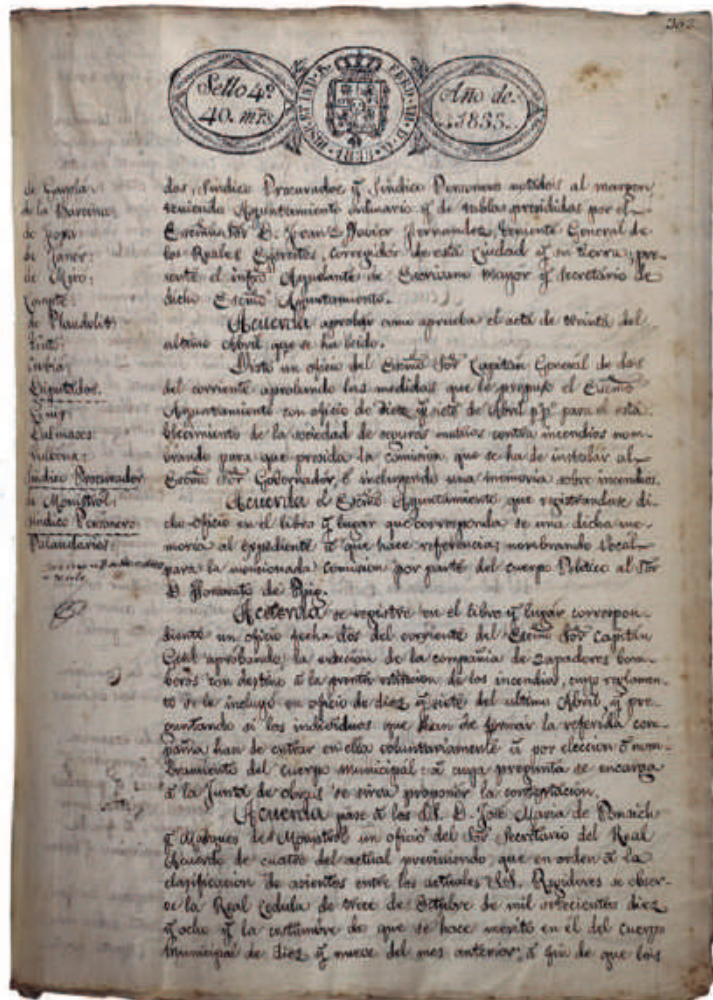 Sello 4º
40. mrs
HISP. ET IND. R. FERD. VII. D. G.
Año de
1833.
de Gayolá:
de la Barcena:
de Foxa:
de Janer:
de Miró:
de Plandolit:
Diputados.
Puig:
Dalmases:
Síndico Procurador
de Monistrol:
Síndico Personero
Palaudarias:
dos, Síndico Procurador y Síndico Personero notados al margen,
teniendo Ayuntamiento ordinario y de tablas presididas por el
Escmo. Sor. D. Juan Xavier Fernandez, Teniente General de
los Reales Egercitos, Corregidor de esta Ciudad y su tierra; pre-
sente el infro. Ayudante de Escribano Mayor y Secretario de
dicho Escmo. Ayuntamiento.
Acuerda aprobar como aprueba el acta de treinta del
ultimo Abril que se ha leido.
Visto un oficio del Escmo. Sor. Capitan General de dos
del corriente aprobando las medidas que le propuso el Escmo.
Ayuntamiento con oficio de diez y siete de Abril pºpº para el esta-
blecimiento de la sociedad de seguros mutuos contra incendios nom-
brando para que presida la comision que se ha de instalar al
Escmo. Sor. Gobernador, é incluyendo una memoria sobre incendios.
Acuerda el Escmo. Ayuntamiento que registrandose di-
cho oficio en el libro y lugar que corresponda se una dicha me-
moria al expediente á que hace referencia; nombrando Vocal
para la mencionada Comision por parte del cuerpo Politico al Sor.
D. Honorato de Puig.
Acuerda se registre en el libro y lugar correspon-
diente un oficio fecha dos del corriente del Escmo. Sor. Capitan
Genl. aprobando la ereccion de la compañia de zapadores bom-
beros con destino á la pronta estincion de los incendios, cuyo reglamen-
to se le incluyó en oficio de diez y siete del ultimo Abril, y pre-
guntando si los individuos que han de formar la referida com-
pañia han de entrar en ella voluntariamente ó por eleccion ó nom-
bramiento del cuerpo municipal: á cuya pregunta se encarga
á la Junta de obras se sirva proponer la contestacion.
Acuerda pase á los SS. D. José Maria de Ponsich
y Marques de Monistrol un oficio del Sor. Secretario del Real
Acuerdo de cuatro del actual previniendo que en orden á la
clasificacion de asientos entre los actuales SS. Regidores se obser-
ve la Real Cedula de trece de Octubre de mil setecientos diez
y ocho y la costumbre de que se hace mérito en el del cuerpo
Municipal de diez y nueve del mes anterior; á fin de que los